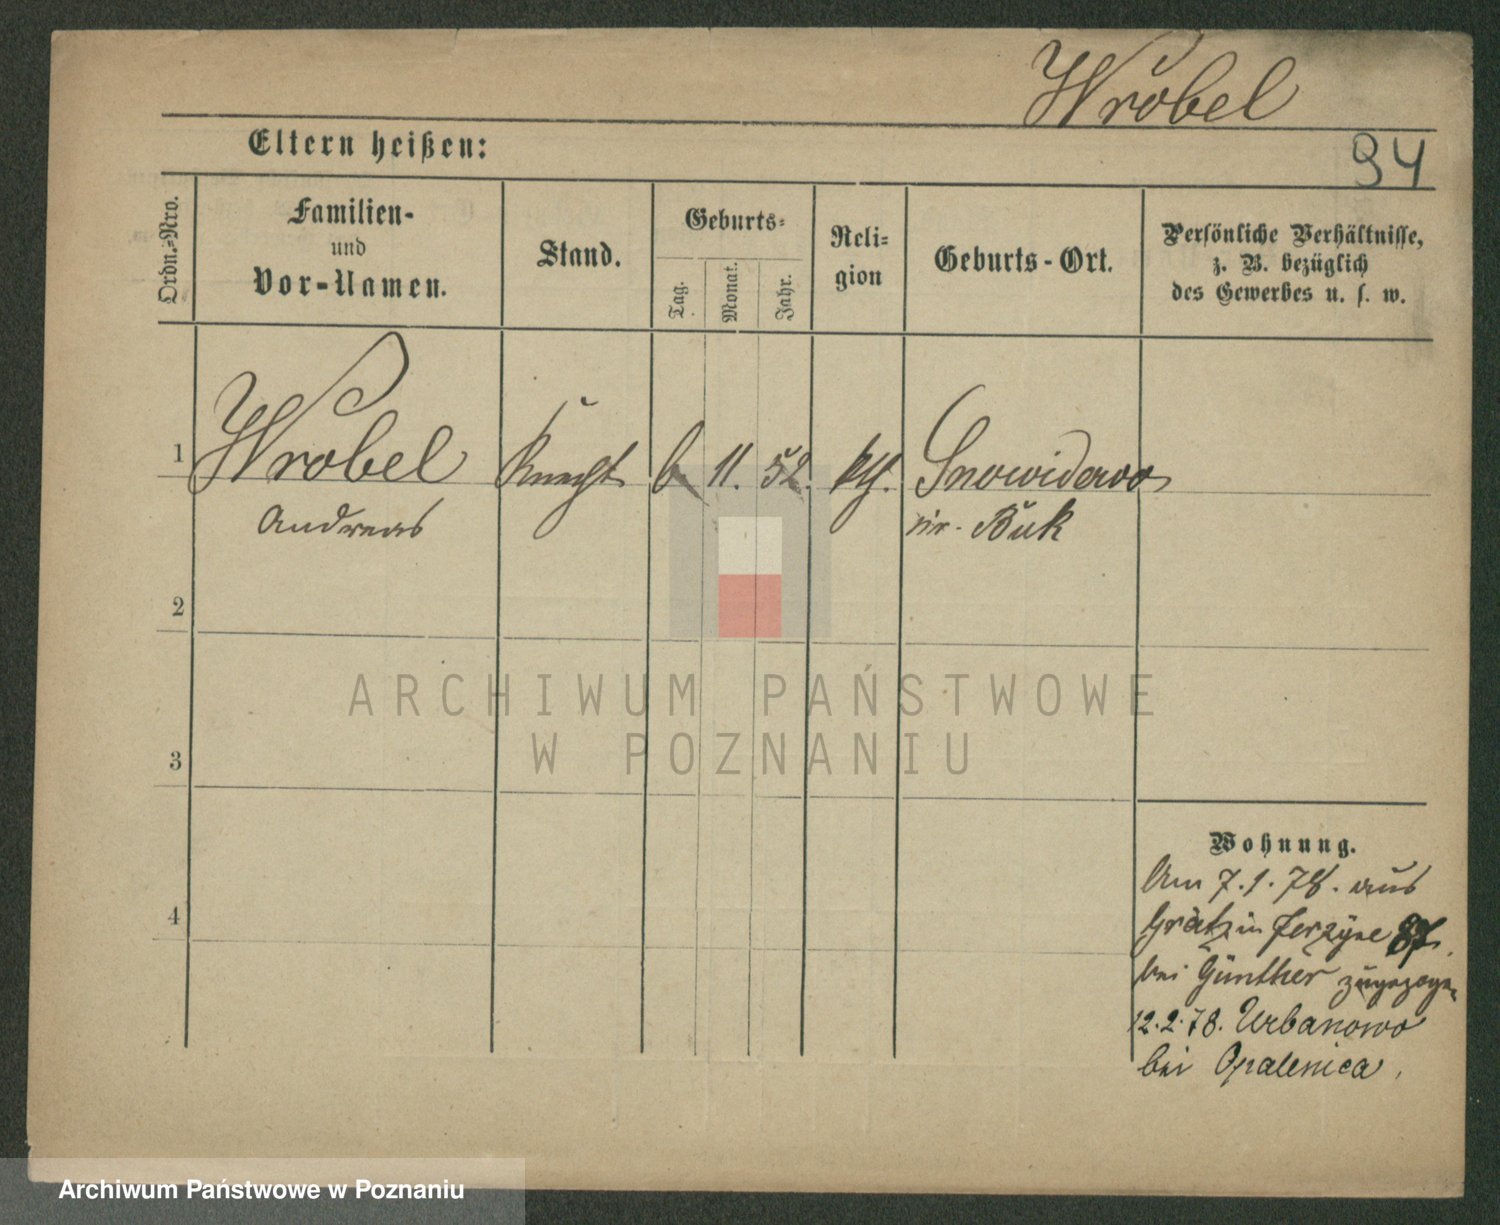 Wróbel
94
Eltern heißen:
Ordn.-Nro.
Familien-
und
Vor-Namen.
Stand.
Geburts-
Tag.
Monat.
Jahr.
Reli-
gion
Geburts-Ort.
Persönliche Verhältnisse,
z. B. bezüglich
des Gewerbes u. s. w.
1 Wrobel Knecht 6 11. 52. kth. Snowidowo
Andreas Buk
2
3
4
Wohnung.
Am 7.1.78. aus
Grätz in Jerzyce 87.
bei Günther zugezogen
12.2.78. Urbanowo
bei Opalenica.
ARCHIWUM PAŃSTWOWE
W POZNANIU
Archiwum Państwowe w Poznaniu